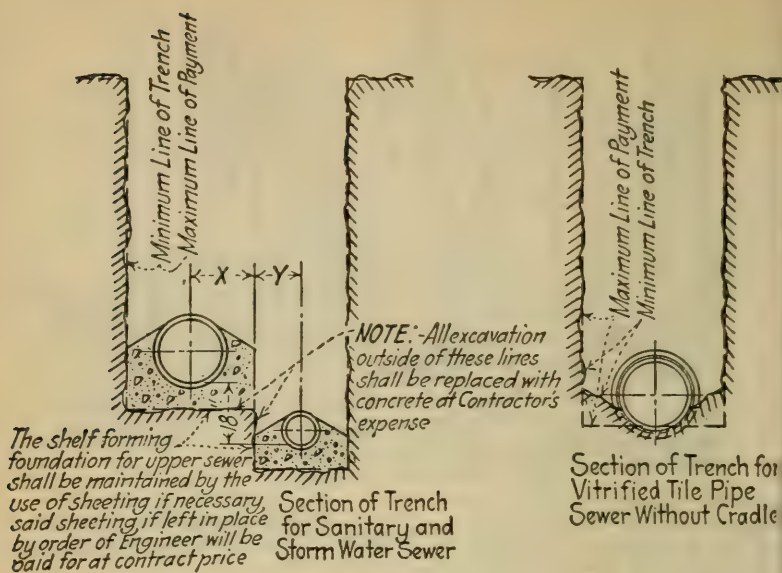 Minimum Line of Trench
Maximum Line of Payment
X
Y
18"
NOTE:-All excavation
outside of these lines
shall be replaced with
concrete at Contractor's
expense
The shelf forming
foundation for upper sewer
shall be maintained by the
use of sheeting if necessary,
said sheeting, if left in place
by order of Engineer will be
paid for at contract price
Section of Trench
for Sanitary and
Storm Water Sewer
Maximum Line of Payment
Minimum Line of Trench
Section of Trench for
Vitrified Tile Pipe
Sewer Without Cradle